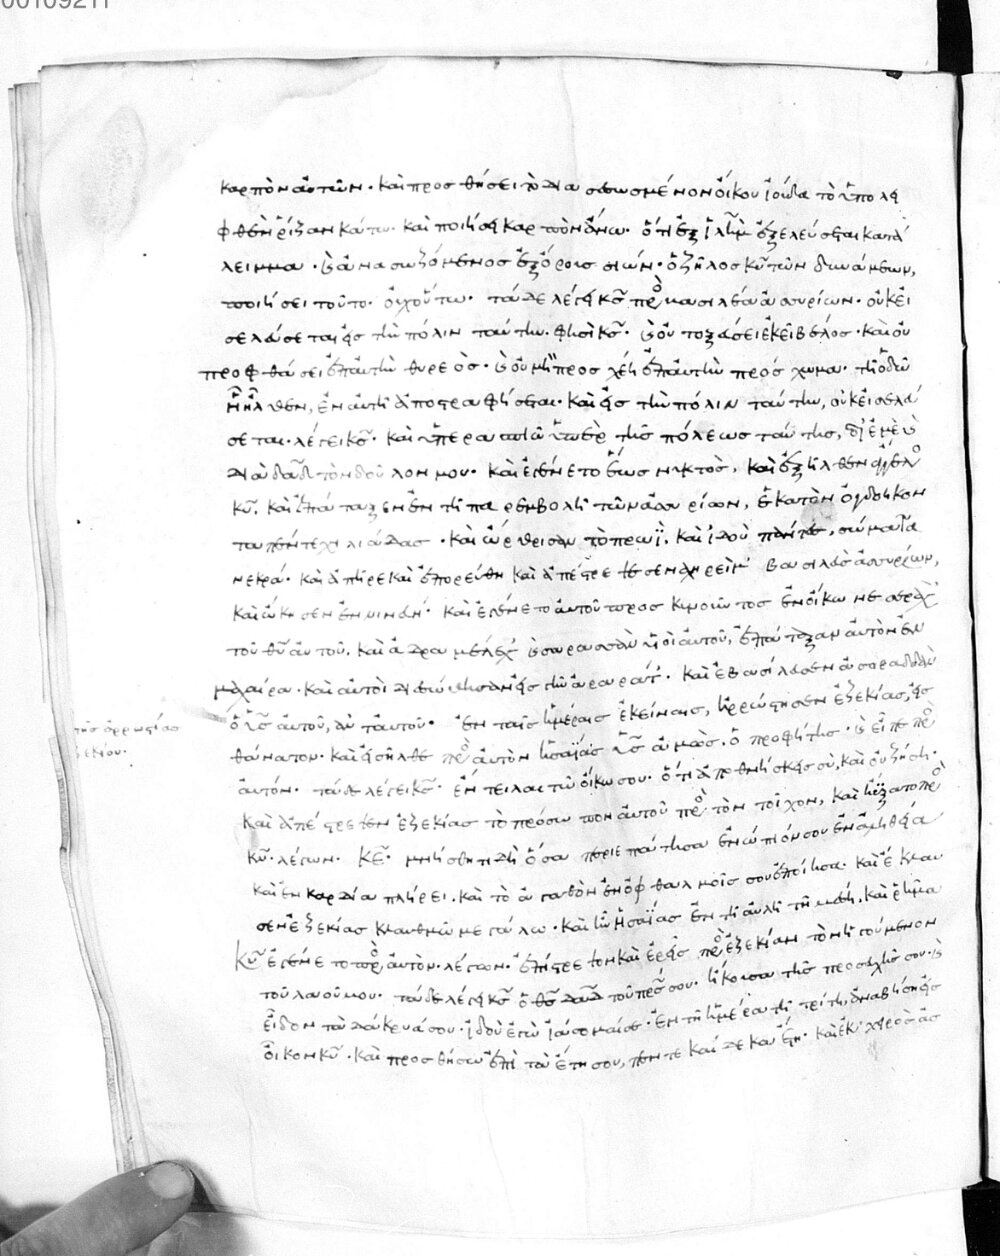 00109211
καρπὸν αὐτῶν· καὶ προσθήσει τὸ διασεσωσμένον οἴκου ἰούδα τὸ ὑπολη
φθὲν ῥίζαν κάτω· καὶ ποιήσει καρπὸν ἄνω· ὅτι ἐξ ἱλῆμ ἐξελεύσεται κατά
λειμμα· καὶ ἀνασωζόμενος ἐξ ὄρους σιών· ὁ ζῆλος κυ τῶν δυνάμεων,
ποιήσει τοῦτο· οὐχ οὕτως· τάδε λέγει κς πρὸς βασιλέα ἀσσυρίων· οὐκ εἰ
σελεύσεται εἰς τὴν πόλιν ταύτην· φησὶ κς· καὶ οὐ τοξεύσει ἐκεῖ βέλος· καὶ οὐ
προφθάσει ἐπ' αὐτὴν θυρεός· καὶ οὐ μὴ προσχέῃ ἐπ' αὐτὴν πρόσχωμα· τῇ ὁδῷ
ᾗ ἦλθεν, ἐν αὐτῇ ἀποστραφήσεται· καὶ εἰς τὴν πόλιν ταύτην, οὐκ εἰσελεύ
σεται· λέγει κς· καὶ ὑπερασπιῶ ὑπὲρ τῆς πόλεως ταύτης, δι' ἐμὲ καὶ
διὰ δαδ τὸν δοῦλον μου· καὶ ἐγένετο ἕως νυκτὸς, καὶ ἐξῆλθεν ἄγγελος
κυ· καὶ ἐπάταξεν ἐν τῇ παρεμβολῇ τῶν ἀσσυρίων, ἑκατὸν ὀγδοήκον
τα πέντε χιλιάδας· καὶ ὤρθρισαν τὸ πρωΐ, καὶ ἰδοὺ πάντες, σώματα
νεκρά· καὶ ἀπῆρε καὶ ἐπορεύθη καὶ ἀπέστρεψε σενναχηρεὶμ βασιλεὺς ἀσσυρίων,
καὶ ᾤκησεν ἐν νινευή· καὶ ἐγένετο αὐτοῦ προσκυνοῦντος ἐν οἴκω νεσαρὰχ
τοῦ θυ αὐτοῦ, καὶ ἀδραμέλεχ καὶ σαρασὰρ υἱοὶ αὐτοῦ, ἐπάταξαν αὐτὸν ἐν
μαχαίρα· καὶ αὐτοὶ διεσώθησαν εἰς γῆν ἀραράτ· καὶ ἐβασίλευσεν ἀσορδὰν
ὁ υς αὐτοῦ, ἀντ' αὐτοῦ· ἐν ταῖς ἡμέραις ἐκείναις, ἠρρώστησεν ἐζεκίας, εἰς
θάνατον· καὶ εἰσῆλθε πρὸς αὐτὸν ἠσαΐας υς ἀμὼς· ὁ προφήτης· καὶ εἶπε πρὸς
αὐτόν· τάδε λέγει κς· ἔντειλαι τῷ οἴκω σου· ὅτι ἀποθνήσκεις σὺ, καὶ οὐ ζήσῃ·
καὶ ἀπέστρεψεν ἐζεκίας τὸ πρόσωπον αὐτοῦ πρὸς τὸν τοῖχον, καὶ ηὔξατο πρὸς
κν· λέγων· κε· μνήσθητι δὴ ὅσα περιεπάτησα ἐνώπιόν σου ἐν ἀληθεία
καὶ ἐν καρδία πλήρει· καὶ τὸ ἀγαθὸν ἐν ὀφθαλμοῖς σου ἐποίησα· καὶ ἔκλαυ
σεν ἐζεκίας κλαυθμῷ μεγάλω· καὶ ἦν ἠσαΐας ἐν τῇ αὐλῇ τῇ μέσῃ, καὶ ῥῆμα
κυ ἐγένετο πρὸς αὐτὸν· λέγων· ἐπίστρεψον καὶ ἐρεῖς πρὸς ἐζεκίαν τὸν ἡγούμενον
τοῦ λαοῦ μου· τάδε λέγει κς ὁ θς δαδ τοῦ πρς σου· ἤκουσα τῆς προσευχῆς σου· καὶ
εἶδον τὰ δάκρυά σου· ἰδοὺ ἐγὼ ἰάσομαί σε· ἐν τῇ ἡμέρα τῇ τρίτῃ, ἀναβήσῃ εἰς
οἶκον κυ· καὶ προσθήσω ἐπὶ τὰ ἔτη σου, πέντε καὶ δέκα ἔτη· καὶ ἐκ χειρὸς ἀσ
τῆς ἀρρωστίας
ἐζεκίου·